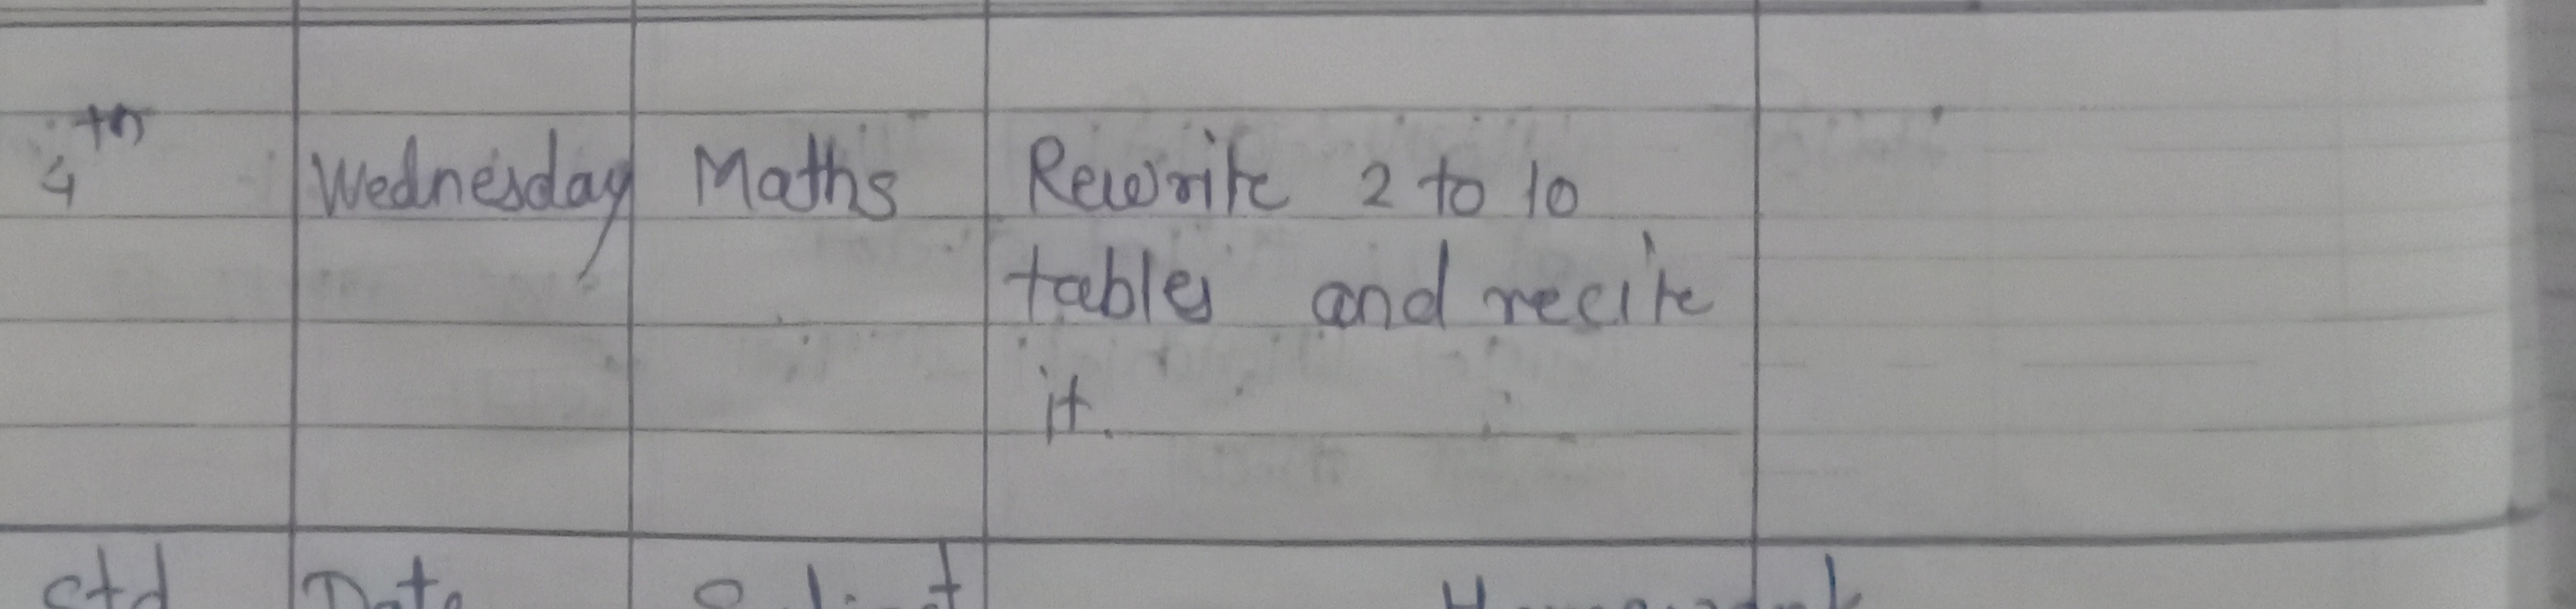 4th Wednesday Maths Rewrite 2 to 10
tables and recite
it.
Std Date Subject Homework